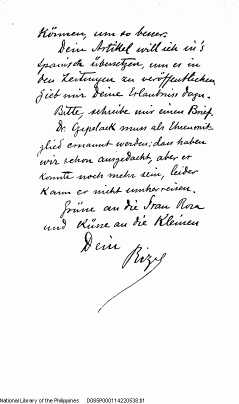 Können, um so besser.
Dein Artikel will ich in's
Spanisch übersetzen, um es in
den Zeitungen zu veröffentlichen
gieb mir Deine Erlaubniss dazu.
Bitte, schreibe mir einen Brief.
Dr. muss als Ehrenmit
glied ernannt werden; das haben
wir schon ausgedacht, aber er
konnte noch mehr sein, leider
kann er nicht umherreisen.
Grüsse an die Frau Rosa
und Küsse an die Kleinen
Dein
Rizal
National Library of the Philippines D095P000114220538.01